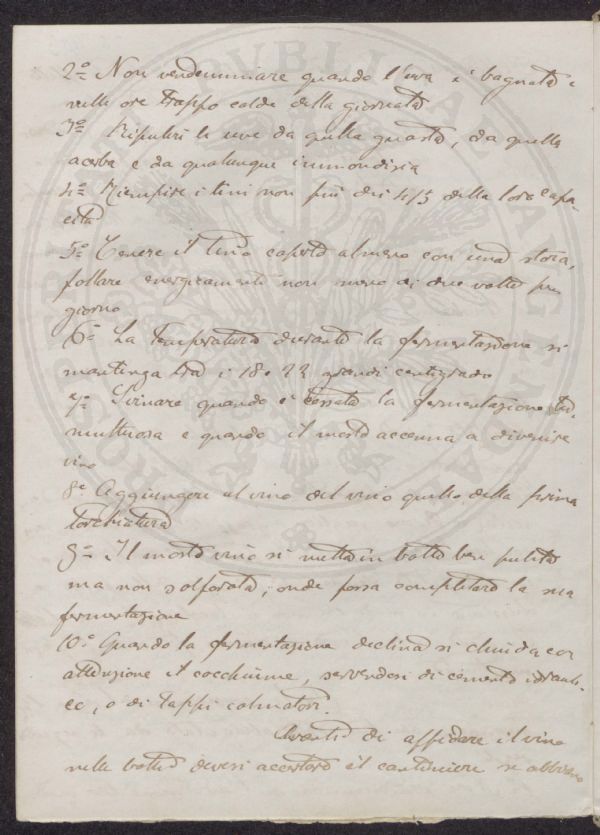 2.º Non vendemmiare quando l'uva è bagnata e
nelle ore troppo calde della giornata
3º Ripulire le uve da quella guasta, da quella
acerba e da qualunque immondizia
4º Riempire i tini non più dei 4/5 della loro capa-
cità
5º Tenere il tino coperto almeno con una stora,
follare energicamente non meno di due volte per
giorno
6º La temperatura durante la fermentazione si
mantenga tra i 18 e 22 gradi centigrado
7º Svinare quando è cessata la fermentazione tu-
multuosa e quando il mosto accenna a divenire
vino
8º Aggiungere al vino del vino quello della prima
torchiatura
9º Il mosto vino si metta in botte ben pulita
ma non solforata, onde possa completare la sua
fermentazione
10º Quando la fermentazione declina si chiuda con
attenzione il cocchiume, servendosi di cemento idrauli-
co, o di tappi colmatori.
Avanti di affidare il vino
nelle botti devesi accertare il cantiniere se abbiano